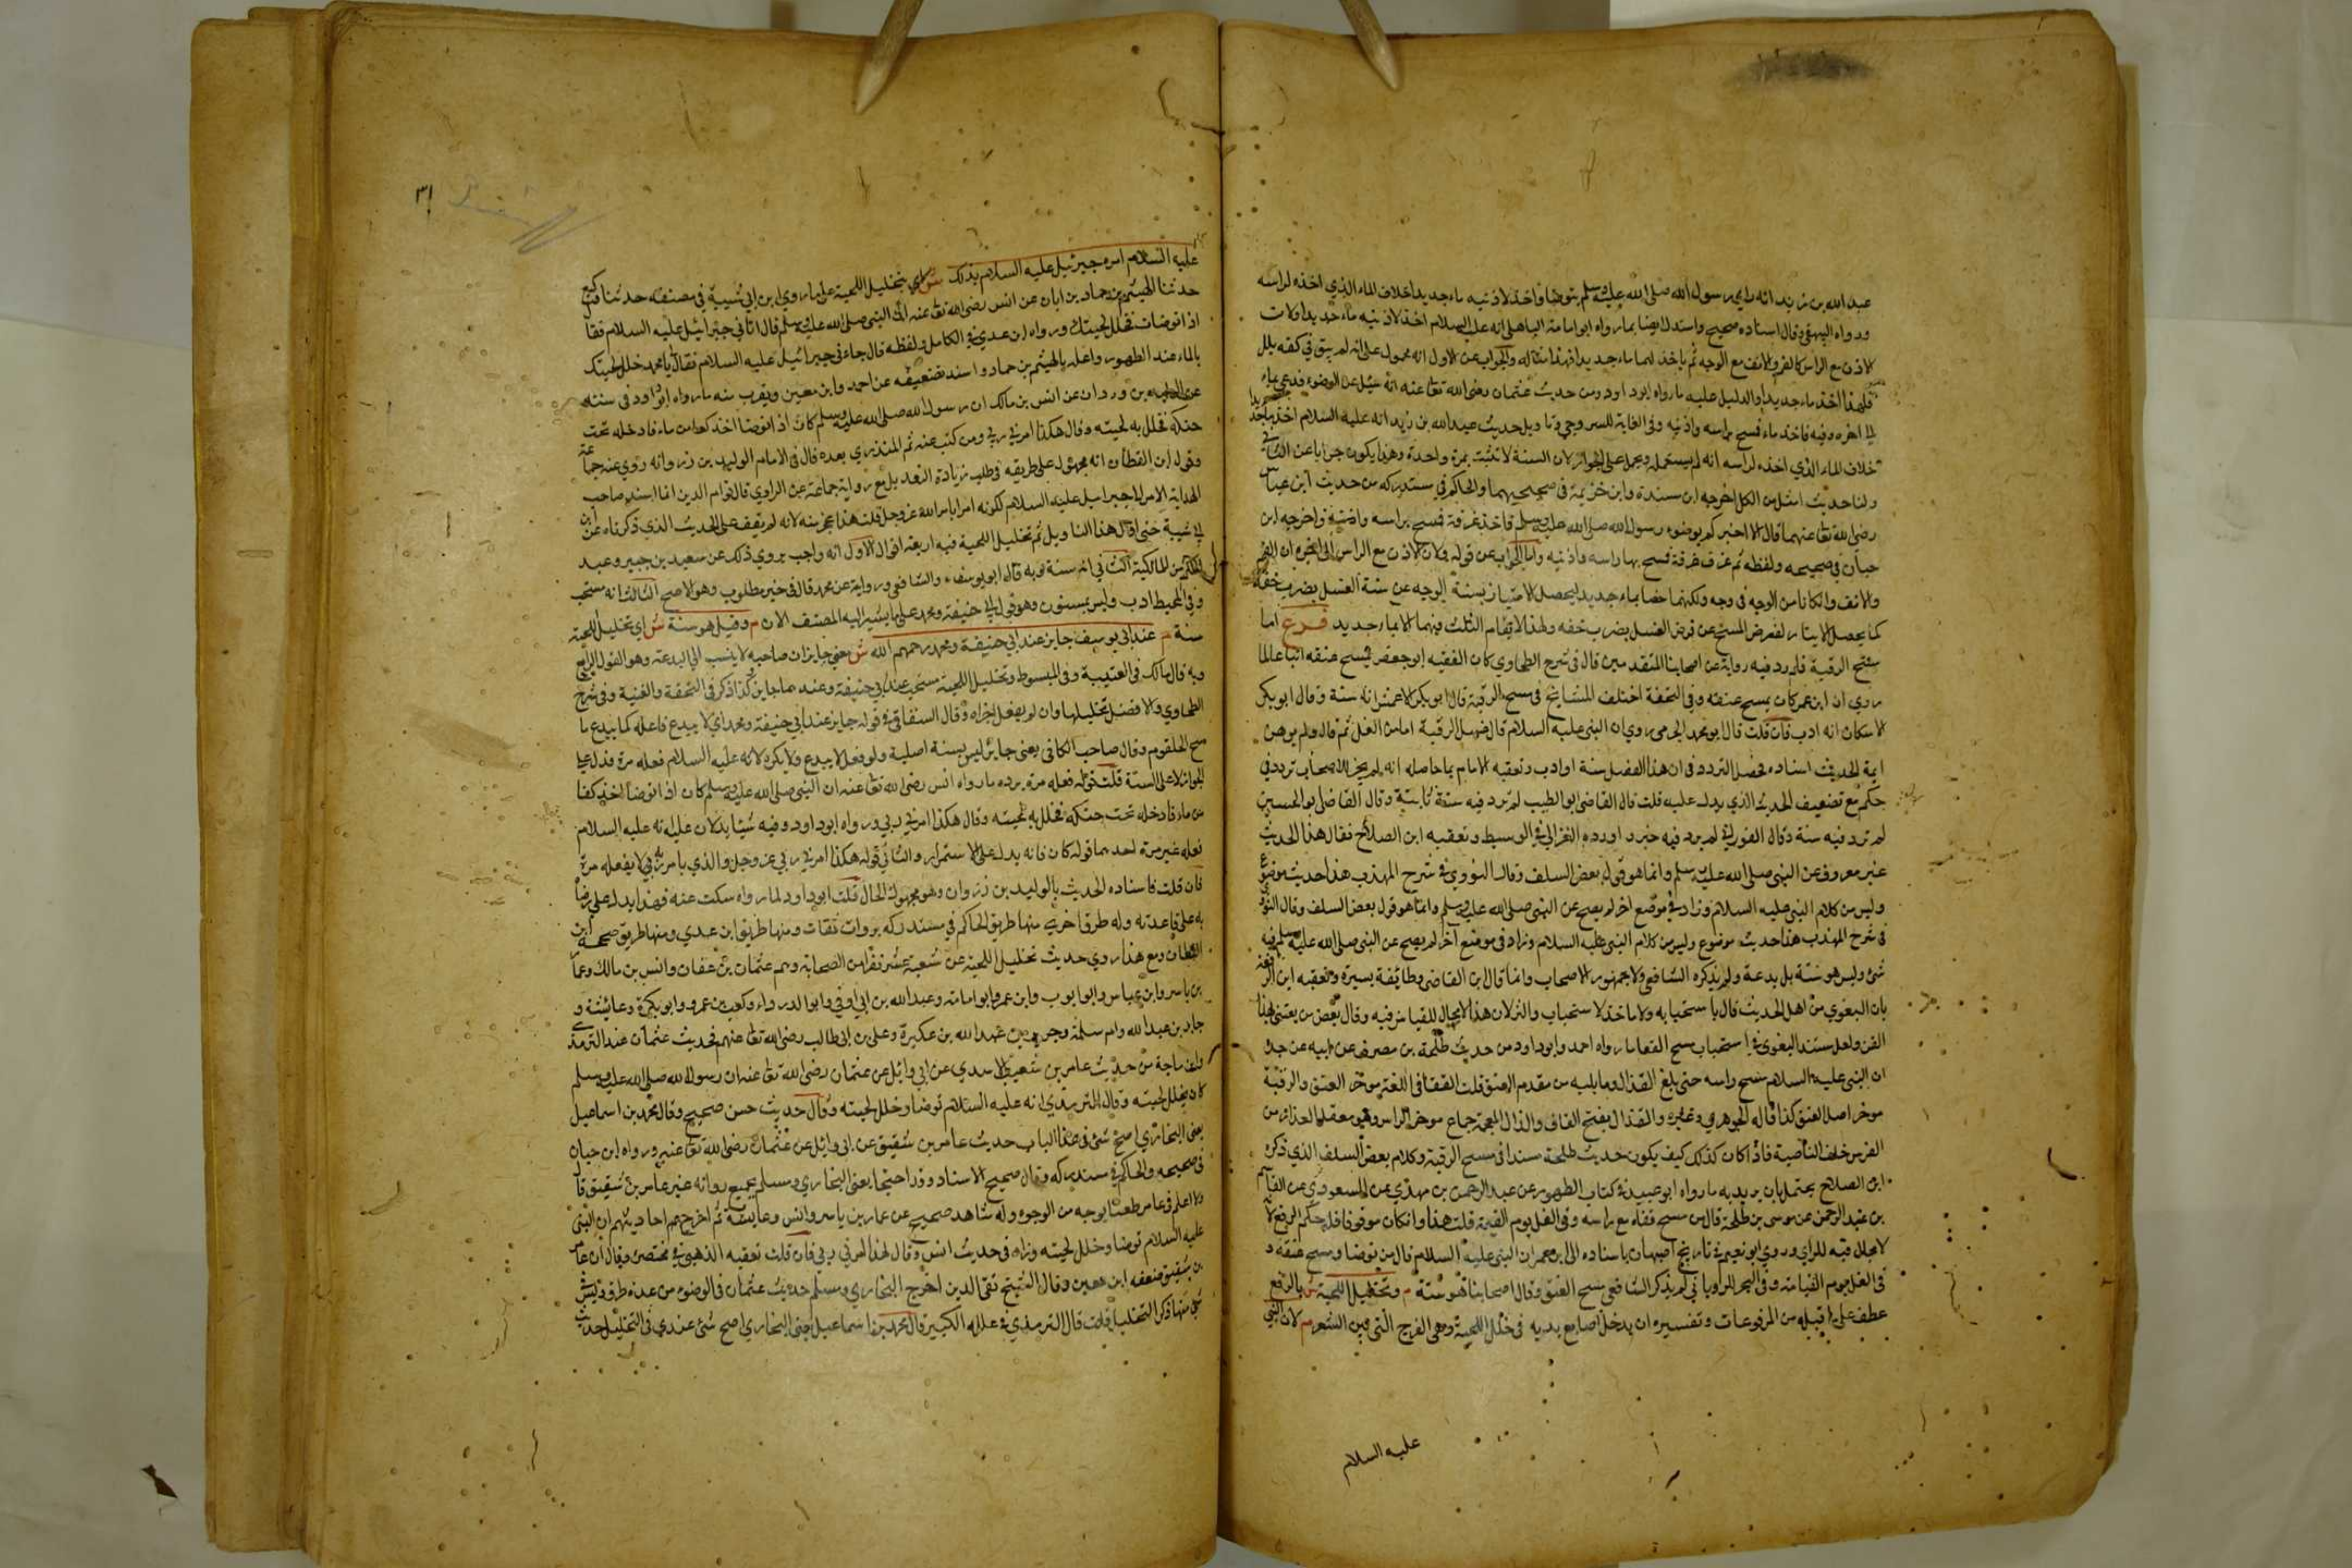 عبد الله بن زيد انه راي رسول الله صلى الله عليه وسلم يتوضا فاخذ لاذنيه ماء جديدا خلاف الماء الذي اخذه لراسه
ورواه البيهقي وقال اسناده صحيح واستدل ايضا بما رواه ابو امامة الباهلي انه عليه السلام اخذ لاذنيه ماء جديدا ولان
الاذن مع الراس كالفم والانف مع الوجه ثم ياخذ لهما ماء جديدا فهنا مثاله والجواب عن الاول انه محمول على انه لم يبق في كفه بلل
فلهذا اخذ ماء جديدا والدليل عليه ما رواه ابو داود من حديث عثمان رضي الله تعا عنه انه سئل عن الوضوء فدعى بماء
الى اخره وفيه فاخذ ماء فمسح براسه واذنيه وفي الغاية للسروجي وتاويل حديث عبد الله بن زيد انه عليه السلام اخذ ماء جديدا
خلاف الماء الذي اخذه لراسه انه لم يستعمله ويحمل على الجواز لان السنة لا تثبت بمرة واحدة وهذا يكون جوابا عن الثاني
ولنا حديث امثل من الكل اخرجه ابن مندة وابن خزيمة في صحيحيهما والحاكم في مستدركه من حديث ابن عباس
رضي الله تعا عنهما قال الا اخبركم بوضوء رسول الله صلى الله عليه وسلم فاخذ غرفة فمسح براسه واذنيه واخرجه ابن
حبان في صحيحه ولفظه ثم غرف غرفة فمسح بها راسه واذنيه واما الجواب عن قوله ولان الاذن مع الراس الى اخره ان الفم
والانف وان كانا من الوجه في وجه ولكنهما خصا بماء جديد ليحصل الامتياز بسنة الوجه عن سنة الغسل بضرب خفة
كما يحصل الايتار لفرض المسح عن فرض الغسل بضرب خفة ولهذا لا يقام الثلث فيهما الا بماء جديد فرع اما
مسح الرقبة فلم يرد فيه رواية عن اصحابنا المتقدمين قال في شرح الطحاوي كان الفقيه ابو جعفر يمسح عنقه اتباعا لما
روي ان ابن عمر كان يمسح عنقه وفي التحفة اختلف المشايخ في مسح الرقبة قال ابو بكر الاعمش انه سنة وقال ابو بكر
الاسكاف انه ادب فان قلت قال ابو محمد الجرمي روي ان النبي عليه السلام قال مسح الرقبة امان من الغل ثم قال ولم يرض
ايمة الحديث اسناده فحصل التردد في ان هذا الفضل سنة او ادب وتعقبه الامام بما حاصله انه لم يجز للاصحاب تردد في
حكم مع تضعيف الحديث الذي يدل عليه قلت قال القاضي ابو الطيب لم ترد فيه سنة ثابتة وقال القاضي ابو الحسين
لم ترد فيه سنة وقال الفوراني لم يرد فيه خبر واورده الغزالي في الوسيط وتعقبه ابن الصلاح فقال هذا الحديث
غير معروف عن النبي صلى الله عليه وسلم وانما هو قول بعض السلف وقال النووي في شرح المهذب هذا حديث موضوع
وليس من كلام النبي عليه السلام وزاد في موضع اخر لم يصح عن النبي صلى الله عليه وسلم وانما هو قول بعض السلف وقال النووي
في شرح المهذب هذا حديث موضوع وليس من كلام النبي عليه السلام وزاد في موضع آخر لم يصح عن النبي صلى الله عليه وسلم فيه
شئ وليس هو سنة بل بدعة ولم يذكره الشافعي ولا جمهور الاصحاب وانما قال ابن القاضي وطائفة يسيرة وتعقبه ابن الرفعة
بان البغوي من اهل الحديث قال باستحبابه ولا ماخذ لاستحباب والا ثر لان هذا لا مجال للقياس فيه وقال بعض من يعتني بهذا
الفن ولعل مستند البغوي في استحباب مسح القفا ما رواه احمد وابو داود من حديث طلحة بن مصرف عن ابيه عن جده
ان النبي عليه السلام مسح راسه حتى بلغ القذال وما يليه من مقدم العنق قلت القفا في اللغة موخر العنق والرقبة
موخر اصل العنق كذا قاله الجوهري وغيره والقذال بفتح القاف والذال المعجمة جماع موخر الراس وهو معقد العذار من
الفرس خلف الناصية فاذا كان كذلك كيف يكون حديث طلحة مسندا في مسح الرقبة وكلام بعض السلف الذي ذكره
ابن الصلاح يحتمل ان يريد به ما رواه ابو عبيد في كتاب الطهور عن عبد الرحمن بن مهدي عن المسعودي عن القاسم
بن عبد الرحمن عن موسى بن طلحة قال من مسح قفاه مع راسه وقي الغل يوم القيمة قلت هذا وان كان موقوفا فله حكم الرفع لانه
لا مجال فيه للراي وروي ابو نعيم في تاريخ اصبهان باسناده الى ابن عمر ان النبي عليه السلام قال من توضا ومسح عنقه
وقي الغل يوم القيامة وفي البحر للروياني لم يذكر الشافعي مسح العنق وقال اصحابنا هو سنة م وتخليل اللحية ش بالرفع
عطف على ما قبله من المرفوعات وتفسيره ان يدخل اصابع يديه في خلل اللحية وهي الفرج التي بين الشعر م لان النبي
عليه السلام
٣١
عليه السلام امره جبرئيل عليه السلام بذلك ش اي بتخليل اللحية على ما روي ابن ابي شيبة في مصنفه حدثنا وكيع
حدثنا الهيثم بن حماد بن ابان عن انس رضي الله تعا عنه ان النبي صلى الله عليه وسلم قال اتاني جبرائيل عليه السلام فقال
اذا توضات فخلل لحيتك ورواه ابن عدي في الكامل ولفظه قال جاءني جبرائيل عليه السلام فقال يا محمد خلل لحيتك
بالماء عند الطهور واعله بالهيثم بن حماد واسند تضعيفه عن احمد وابن معين ويقرب منه ما رواه ابو داود في سننه
عن الوليد بن وردان عن انس بن مالك ان رسول الله صلى الله عليه وسلم كان اذا توضا اخذ كفا من ماء فادخله تحت
حنكه فخلل به لحيته وقال هكذا امرني ربي ومن كتب عنه ثم المنذري بعده قال في الامام الوليد بن زروانه روي عنه جماعة
وقول ابن القطان انه مجهول على طريقه في طلب زيادة التعديل مع رواية جماعة عن الراوي قال قوام الدين انما اسند صاحب
الهداية الامر الى جبرايل عليه السلام لكونه امرا بامر الله عز وجل قلت هذا عجز منه لانه لم يقف على الحديث الذي ذكرناه عن ابن
ابي شيبة حتى اقال هذا التاويل ثم تخليل اللحية فيه اربعة اقوال الاول انه واجب يروي ذلك عن سعيد بن جبير وعبد
الحكم من المالكية الثاني انه سنة وبه قال ابو يوسف والشافعي ورواية عن محمد قال في خير مطلوب وهو الاصح الثالث انه مستحب
وفي المحيط ادب وليس بمسنون وهو قول ابي حنيفة ومحمد على ما يشير اليه المصنف الان م وقيل هو سنة ش اي تخليل اللحية
سنة م عند ابي يوسف جايز عند ابي حنيفة ومحمد رحمهم الله ش معني جايز ان صاحبه لا ينسب الى البدعة وهو القول الرابع
وبه قال مالك في العتيبية وفي المبسوط وتخليل اللحية مستحب عند ابي حنيفة وعندهما جايز كذا ذكر في التحفة والغنية وفي شرح
الطحاوي والافضل تخليلها وان لم يفعل اجزاه وقال السنغاقي في قوله جايز عند ابي حنيفة ومحمد اي لا يبدع فاعله كما يبدع ما
سح الحلقوم وقال صاحب الكافي يعني جائز ليس بسنة اصلية ولو فعل لا يبدع ولا يكره لانه عليه السلام فعله مرة فدل على
الجواز لا على السنة قلت قوله فعله مرة يرده ما رواه انس رضي الله تعا عنه ان النبي صلى الله عليه وسلم كان اذا توضا اخذ كفا
من ماء فادخله تحت حنكه فخلل به لحيته وقال هكذا امرني ربي ورواه ابو داود وفيه شيئا يدلان عليه انه عليه السلام
فعله غير مرة احدهما قوله كان فانه يدل على الاستمرار والثاني قوله هكذا امرني ربي عز وجل والذي يامر به ربي لا يفعله مرة
فان قلت فاسناده الحديث بالوليد بن زروان وهو مجهول الحال قلت ابو داود لما رواه سكت عنه فهذا يدل على رضاه
به على قاعدته وله طرق اخري منها طريق الحاكم في مستدركه بروات ثقات ومنها طريق ابن عدي ومنها طريق صححه ابن
القطان ومع هذا روي حديث تخليل اللحية عن سبعة عشر نفرا من الصحابة وهم عثمان بن عفان وانس بن مالك وعمار
بن ياسر وابن عباس وابو ايوب وابن عمر وابو امامة وعبد الله بن ابي اوفي وابو الدرداء وكعب بن عمرو وابو بكرة وعائشة و
جابر بن عبد الله وام سلمة وجرير وعبد الله بن عكبرة وعلي بن ابي طالب رضي الله تعا عنهم فحديث عثمان عند الترمذي
وابن ماجة من حديث عامر بن شقيق الاسدي عن ابي وائل عن عثمان رضي الله تعا عنه ان رسول الله صلى الله عليه وسلم
كان يخلل لحيته وقال الترمذي انه عليه السلام توضا وخلل لحيته وقال حديث حسن صحيح وقال محمد بن اسماعيل
يعني البخاري اصح شئ في هذا الباب حديث عامر بن شقيق عن ابي وائل عن عثمان رضي الله تعا عنه ورواه ابن حبان
في صحيحه والحاكم في مستدركه وقال صحيح الاسناد وقد احتجا يعني البخاري ومسلم بجميع رواته غير عامر بن شقيق قال
ولا اعلم في عامر طعنا بوجه من الوجوه وله شاهد صحيح عن عمار بن ياسر وانس وعايشة ثم اخرج لهم احاديثهم ان النبي
عليه السلام توضا وخلل لحيته وزاد في حديث انس وقال بهذا امرني ربي فان قلت تعقبه الذهبي في مختصره وقال ان عامر
بن شقيق ضعفه ابن معين وقال الشيخ تقي الدين اخرج البخاري ومسلم حديث عثمان في الوضوء من عدة طرق وليس
شئ منها ذكر التخليل قلت قال الترمذي في علله الكبير قال محمد بن اسماعيل يعني البخاري اصح شئ عندي في التخليل حديث